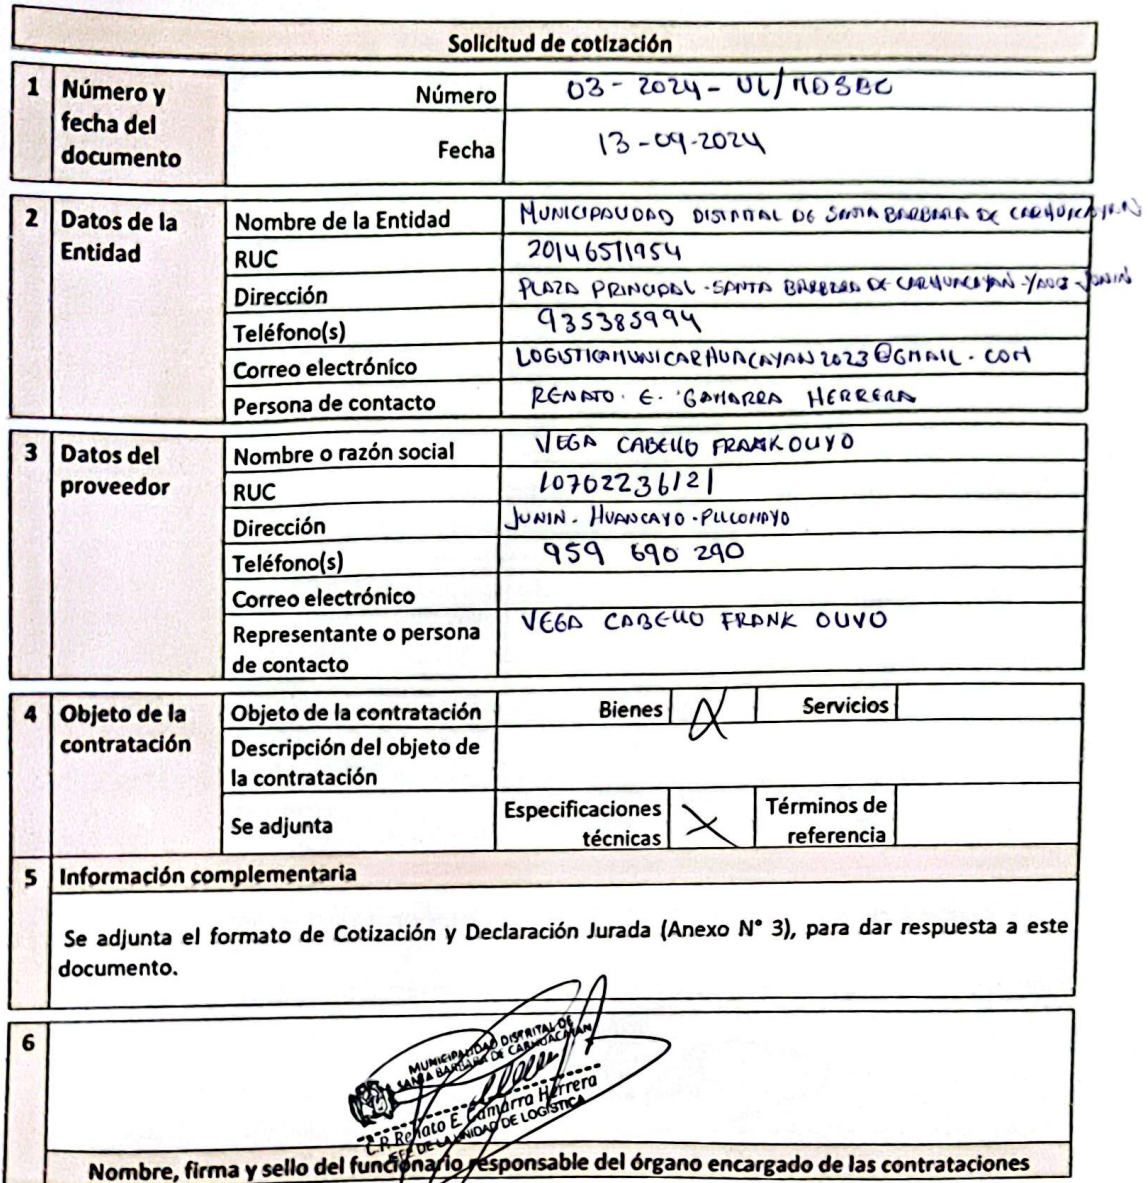 Solicitud de cotización
1 Número y fecha del documento
Número 03-2024-UL/MDSBC
Fecha 13-09-2024
2 Datos de la Entidad
Nombre de la Entidad MUNICIPALIDAD DISTRITAL DE SANTA BARBARA DE CARHUACAYAN
RUC 20146571954
Dirección PLAZA PRINCIPAL - SANTA BARBARA DE CARHUACAYAN - YAULI - JUNIN
Teléfono(s) 935385994
Correo electrónico LOGISTICAMUNICARHUACAYAN2023@GMAIL.COM
Persona de contacto RENATO E. GAMARRA HERRERA
3 Datos del proveedor
Nombre o razón social VEGA CABELLO FRANK OLIVO
RUC 10702236121
Dirección JUNIN - HUANCAYO - PILCOMAYO
Teléfono(s) 959 690 290
Correo electrónico
Representante o persona de contacto VEGA CABELLO FRANK OLIVO
4 Objeto de la contratación
Objeto de la contratación Bienes X Servicios
Descripción del objeto de la contratación
Se adjunta Especificaciones técnicas X Términos de referencia
5 Información complementaria
Se adjunta el formato de Cotización y Declaración Jurada (Anexo N° 3), para dar respuesta a este
documento.
6
MUNICIPALIDAD DISTRITAL DE
SANTA BARBARA DE CARHUACAYAN
C.P. Renato E. Gamarra Herrera
JEFE DE LA UNIDAD DE LOGISTICA
Nombre, firma y sello del funcionario responsable del órgano encargado de las contrataciones